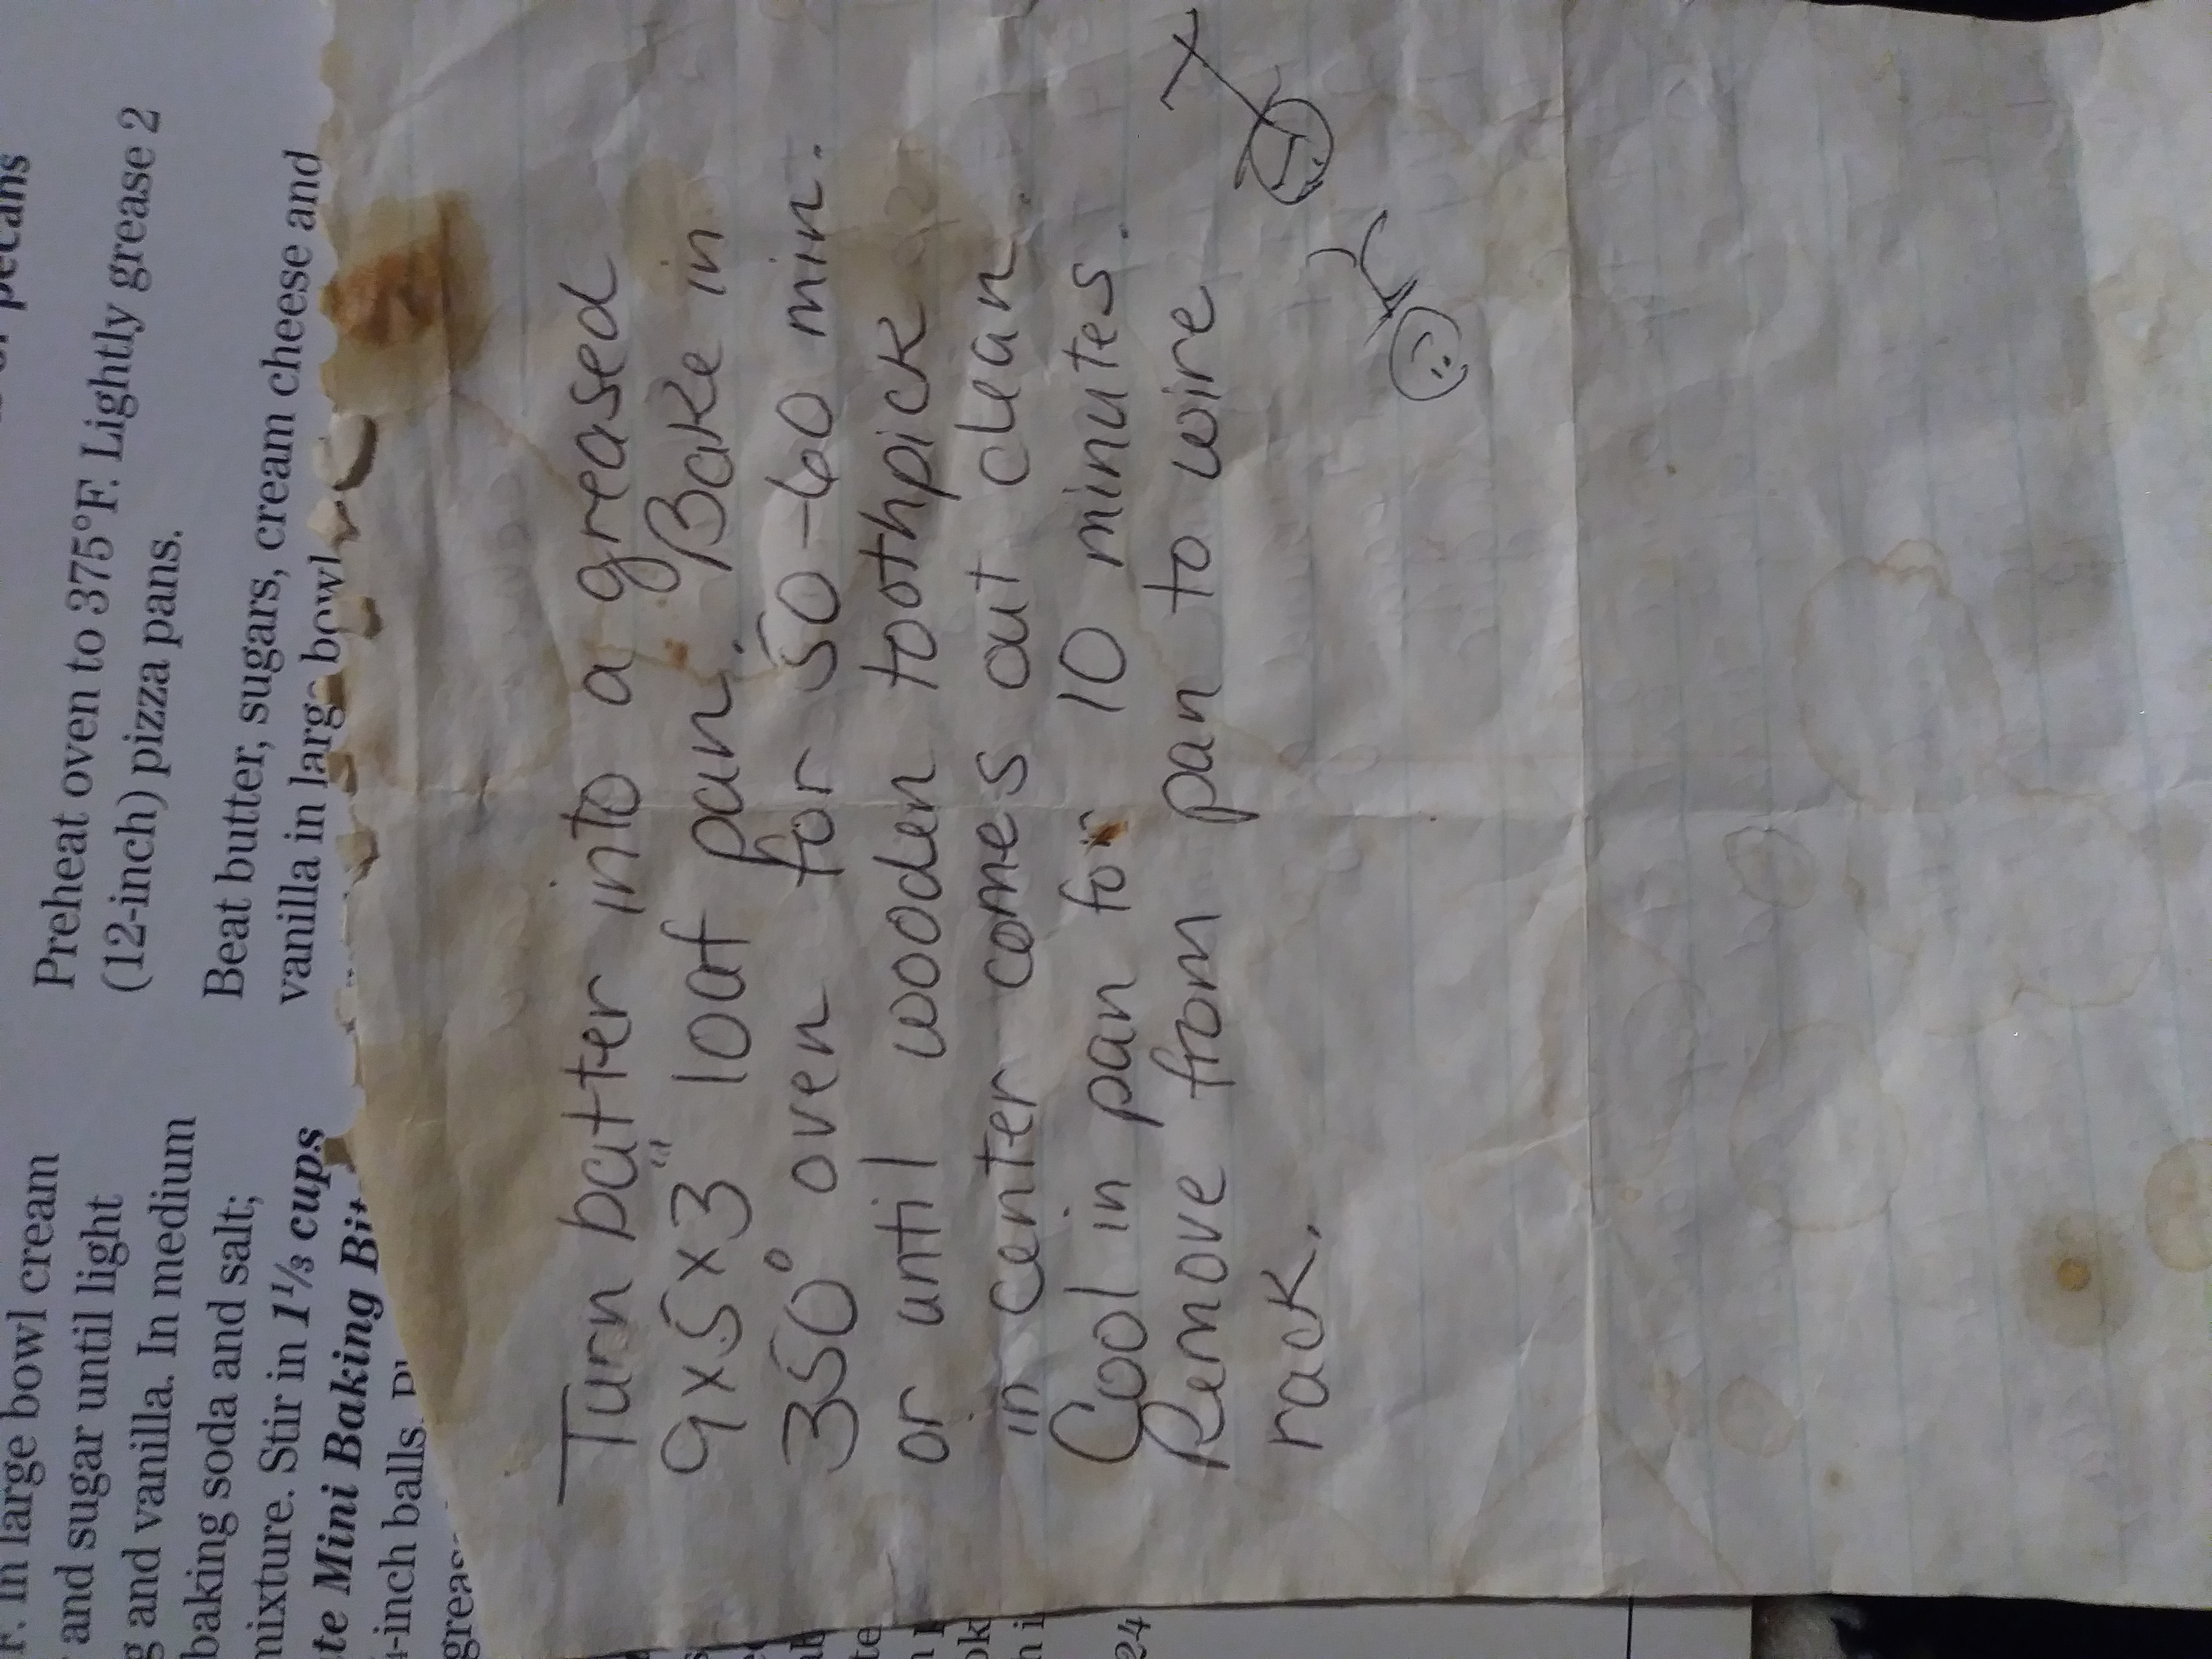 or pecans
Preheat oven to 375°F. Lightly grease 2
(12-inch) pizza pans.
Beat butter, sugars, cream cheese and
vanilla in large bowl
F. In large bowl cream
and sugar until light
and vanilla. In medium
baking soda and salt;
mixture. Stir in 1⅓ cups
Mini Baking
-inch balls.
Turn batter into a greased
9x5x3" loaf pan. Bake in
350° oven for 50-60 min.
or until wooden toothpick
in center comes out clean.
Cool in pan for 10 minutes.
Remove from pan to wire
rack.
24